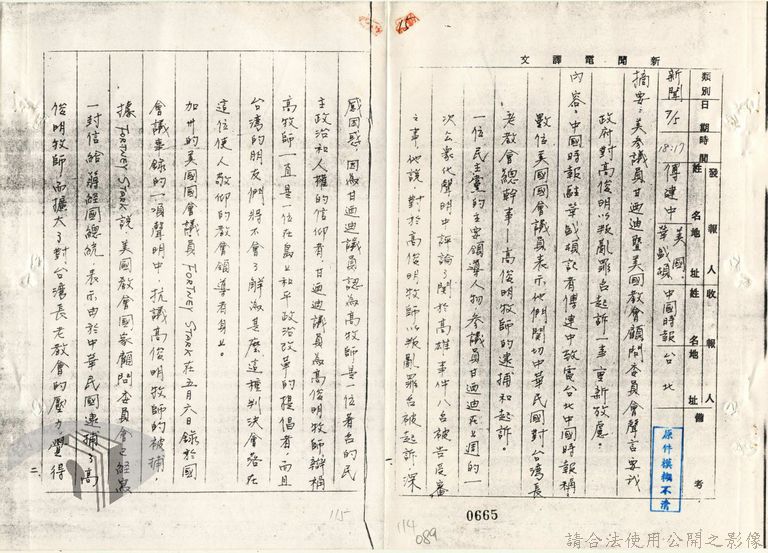 新聞電譯文
類別 日期 時間 發報人 姓名 地址 收報人 姓名 地址 備考
新聞 7/5 18:17 傅建中 美國華盛頓 中國時報 台北
摘要:美參議員甘迺迪暨美國教會顧問委員會聲言要我
政府對高俊明以叛亂罪名起訴一事重新考慮。
內容:中國時報駐華盛頓記者傅建中致電台北中國時報稱
數位美國國會議員表示他們關切中華民國對台灣長
老教會總幹事—高俊明牧師的逮捕和起訴。
一位民主黨的主要領導人物參議員甘迺迪在上週的一
次公眾化聲明中評論了關於高雄事件八名被告受審
之事,他說,對於高俊明牧師以叛亂罪名被起訴,深
一
原件模糊不清
0665
114
089
115
感困惑,因為甘迺迪議員認為高牧師是一位著名的民
主政治和人權的信仰者,甘迺迪議員為高俊明牧師辯稱
高牧師一直是一位在島上和平政治改革的提倡者,而且
台灣的朋友們將不會了解為甚麼這種判決會落在
這位使人敬仰的教會領導者身上。
加州的美國國會議員 FORTNEY STARK 在五月六日錄於國
會議事錄的一項聲明中,抗議高俊明牧師的被捕,
據 FORTNEY STARK 說,美國教會國家顧問委員會已經寫
一封信給蔣經國總統,表示由於中華民國逮捕了高
俊明牧師而擴大了對台灣長老教會的壓力覺得
二
請合法使用公開之影像